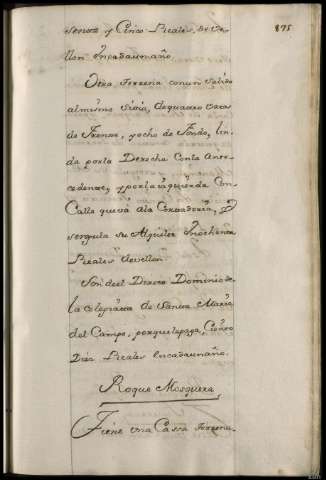 875
sentta y Cinco Reales, de Ve-
llon Encadaunaño.
Otra Terrena con su salida
al mismo Sitio, de quatro varas
de Frente, y ocho de Fondo, lin-
da porla Derecha Conla Ante-
cedente, y porla izquierda Con
Calle que vá ála Cortaduria,
seregula su Alquiler Enochenta
Reales de vellon.
Son deel Directo Dominio de
la Colegiata de Santa Maria
del Campo, porque le paga, Ciento
Diez Reales Encadaunaño.
Roque Mosquera
Tiene una Cassa Terrena